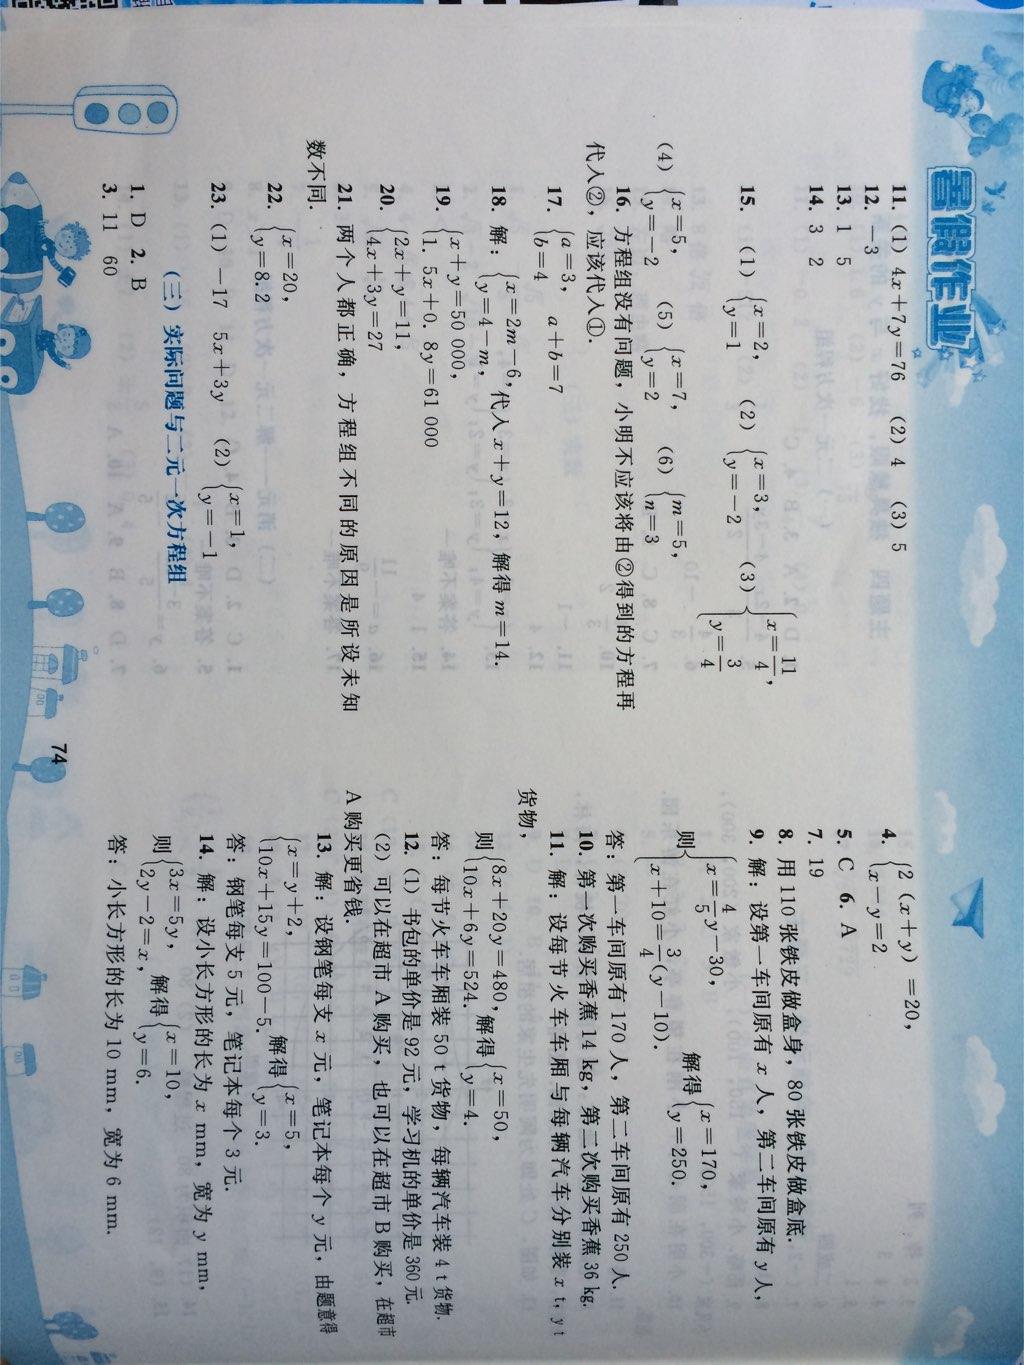 暑假作业
11. (1) 4x+7y=76 (2) 4 (3) 5
12. -3
13. 1 5
14. 3 2
15. (1) {x=2, y=1 (2) {x=3, y=-2 (3) {x=11/4, y=3/4
(4) {x=5, y=-2 (5) {x=7, y=2 (6) {m=5, n=3
16. 方程组没有问题，小明不应该将由②得到的方程再
代入②，应该代入①.
17. {a=3, b=4 a+b=7
18. 解：{x=2m-6, y=4-m, 代入x+y=12，解得m=14.
19. {x+y=50 000, 1.5x+0.8y=61 000
20. {2x+y=11, 4x+3y=27
21. 两个人都正确，方程组不同的原因是所设未知
数不同.
22. {x=20, y=8.2
23. (1) -17 5x+3y (2) {x=1, y=-1
(三) 实际问题与二元一次方程组
1. D 2. B
3. 11 60
4. {2(x+y)=20, x-y=2
5. C 6. A
7. 19
8. 用110张铁皮做盒身，80张铁皮做盒底.
9. 解：设第一车间原有x人，第二车间原有y人，
则{x=4/5y-30, x+10=3/4(y-10). 解得{x=170, y=250.
答：第一车间原有170人，第二车间原有250人.
10. 第一次购买香蕉14 kg，第二次购买香蕉36 kg.
11. 解：设每节火车车厢与每辆汽车分别装x t，y t
货物，
则{8x+20y=480, 10x+6y=524. 解得{x=50, y=4.
答：每节火车车厢装50 t货物，每辆汽车装4 t货物.
12. (1) 书包的单价是92元，学习机的单价是360元.
(2) 可以在超市A购买，也可以在超市B购买，在超市
A购买更省钱.
13. 解：设钢笔每支x元，笔记本每个y元，由题意得
{x=y+2, 10x+15y=100-5. 解得{x=5, y=3.
答：钢笔每支5元，笔记本每个3元.
14. 解：设小长方形的长为x mm，宽为y mm，
则{3x=5y, 2y-2=x, 解得{x=10, y=6.
答：小长方形的长为10 mm，宽为6 mm.
74